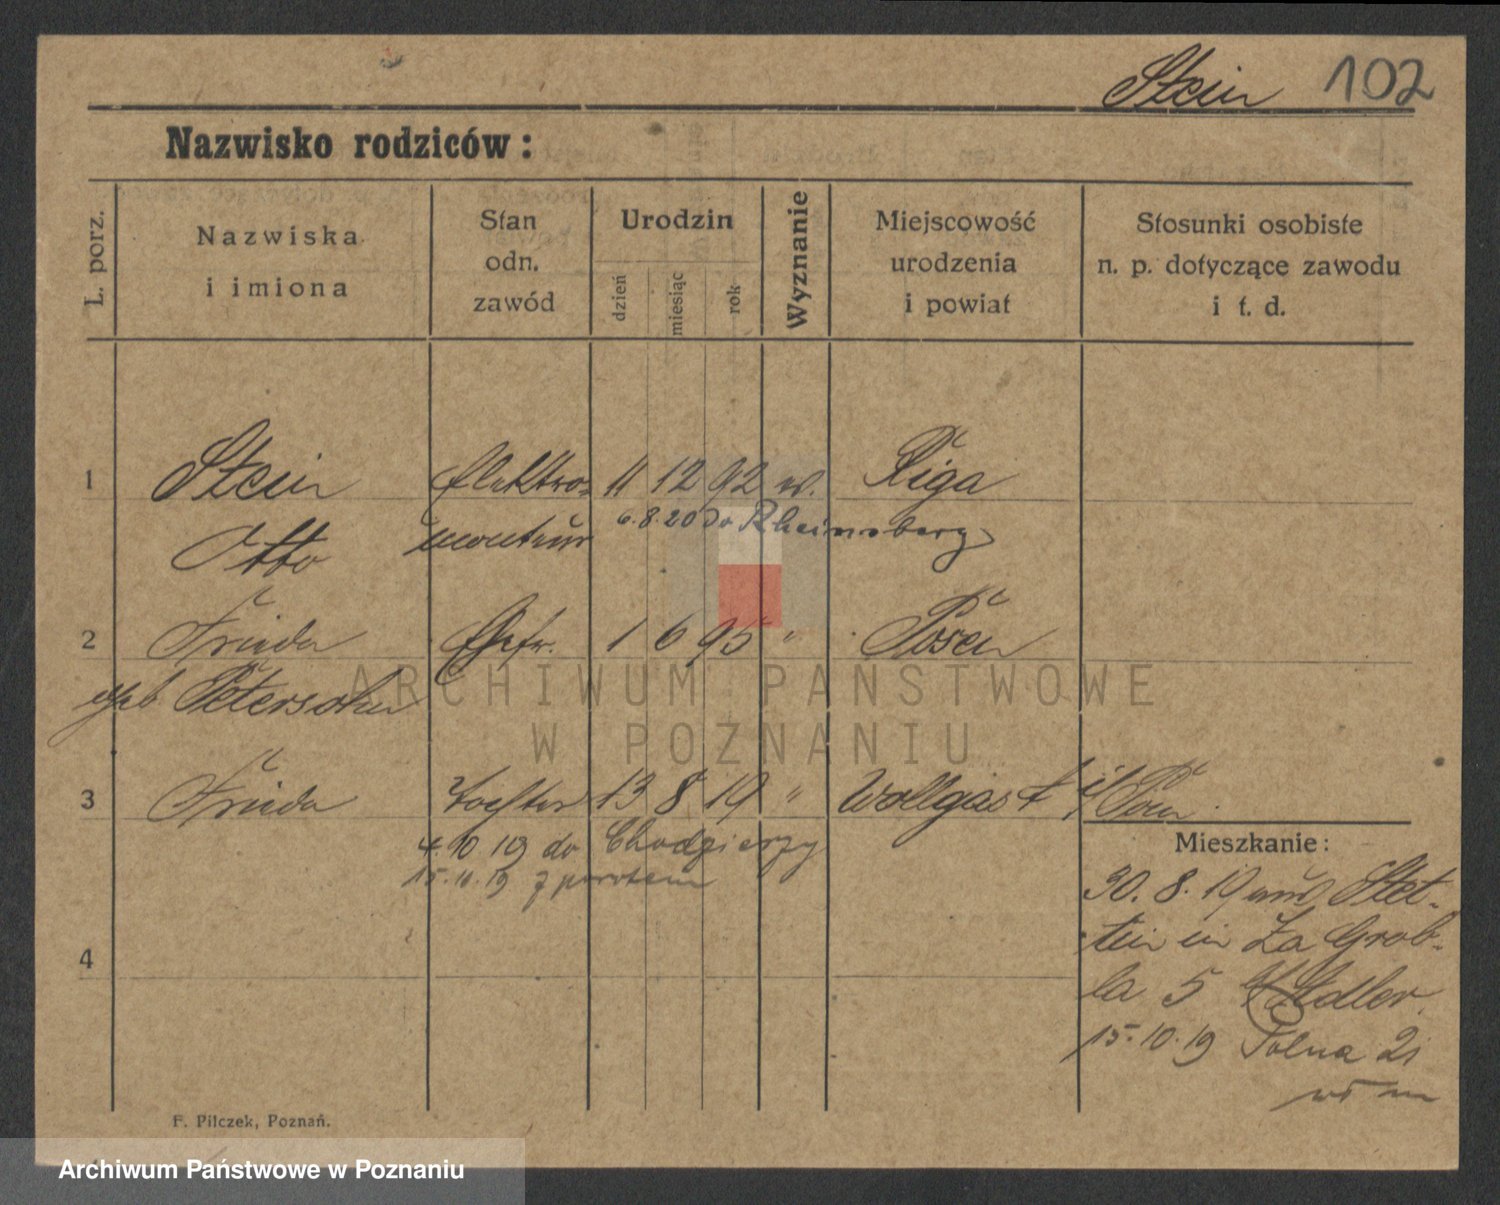 Stein 102
Nazwisko rodziców:
L. porz.
Nazwiska
i imiona
Stan
odn.
zawód
Urodzin
dzień
miesiąc
rok
Wyznanie
Miejscowość
urodzenia
i powiat
Stosunki osobiste
n. p. dotyczące zawodu
i t. d.
1 Stein Elektro- 11 12 92 ev. Riga
Otto monteur 6.8.20 do Rheinsberg
2 Frieda Ehefr. 1 6 95 " Posen
geb Petersohn
3 Frieda Tochter 13 8 19 " Wollgast
4.10.19 do Chodzieży
15.10.19 z powrotem
Mieszkanie:
30.8.19 aus Stet-
tin in Za Grob-
la 5 Adler.
15.10.19 Polna 21
4
F. Pilczek, Poznań.
ARCHIWUM PAŃSTWOWE
W POZNANIU
Archiwum Państwowe w Poznaniu